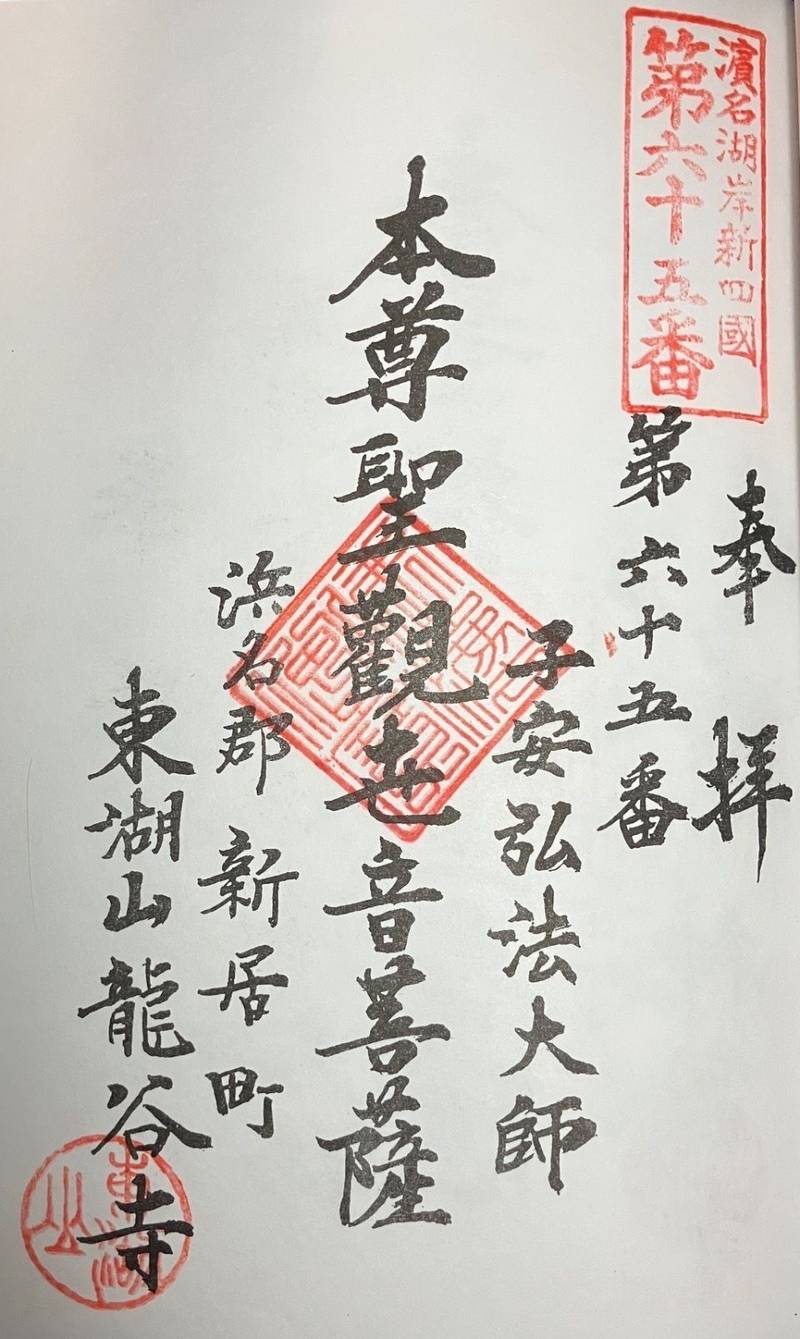 濱名湖岸新四國
第六十五番
奉拝
第六十五番
子安弘法大師
本尊聖觀世音菩薩
浜名郡新居町
東湖山龍谷寺
東湖山